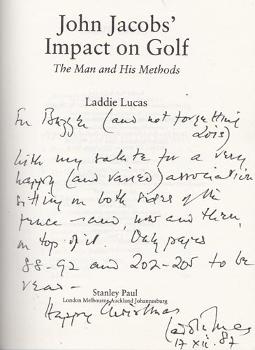 John Jacobs'
Impact on Golf
The Man and His Methods
Laddie Lucas
For (and not forgetting
Lois)
With my salute for a very
happy (and varied) association
sitting on both sides of the
fence – and, now and then,
on top of it. Only pages
88-92 and 202-205 to be
read –
Stanley Paul
London Melbourne Auckland Johannesburg
Happy Christmas
Laddie Lucas
17 xii. 87